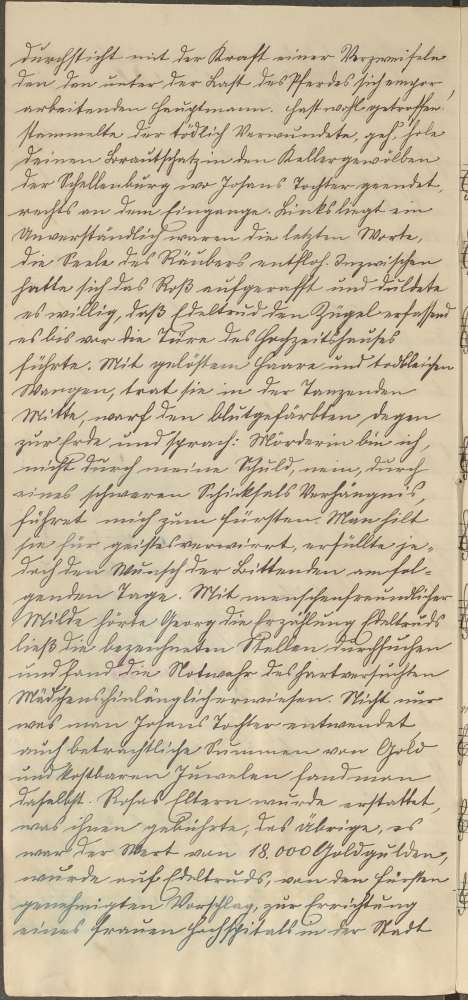 durchsticht mit der Kraft einer Verzweifeln
den, den unter der Last des Pferdes sich empor
arbeitenden Hauptmann. Hast wohl getroffen,
stammelte der tödlich Verwundete, geh, hole
deinen Brautschatz in den Kellergewölben
der Schellenburg wo Johans Tochter geendet,
rechts an dem Eingange. Links liegt ein
Unverständlich waren die letzten Worte,
die Seele des Räubers entfloh. Inzwischen
hatte sich das Roß aufgerafft und duldete
es willig, daß Edeltrud den Zügel erfassend
es bis vor die Türe des Hochzeitshauses
führte. Mit gelöstem Haare und todbleichen
Wangen, trat sie in der Tanzenden
Mitte, warf den blutgefärbten Degen
zur Erde und sprach: Mörderin bin ich,
nicht durch meine Schuld, nein, durch
eines schweren Schicksals Verhängnis,
führet mich zum Fürsten. Man hilt
sie für geistesverwirrt, erfüllte je-
doch den Wunsch der Bittenden am fol-
genden Tage. Mit menschenfreundlicher
Milde hörte Georg die Erzählung Edeltruds
ließ die bezeichneten Stellen durchsuchen
und fand die Notwehr des hartversuchten
Mädchens hinlänglich erwiesen. Nicht nur
was man Johans Tochter entwendet
auch beträchtliche Summen von Gold
und kostbaren Juwelen fand man
daselbst. Rosas Eltern wurde erstattet,
was ihnen gebührte, das übrige, es
war der Wert von 18.000 Goldgulden,
wurde auf Edeltruds, von den Fürsten
genehmigten Vorschlag, zur Errichtung
eines Frauen Hochspitals in der Stadt